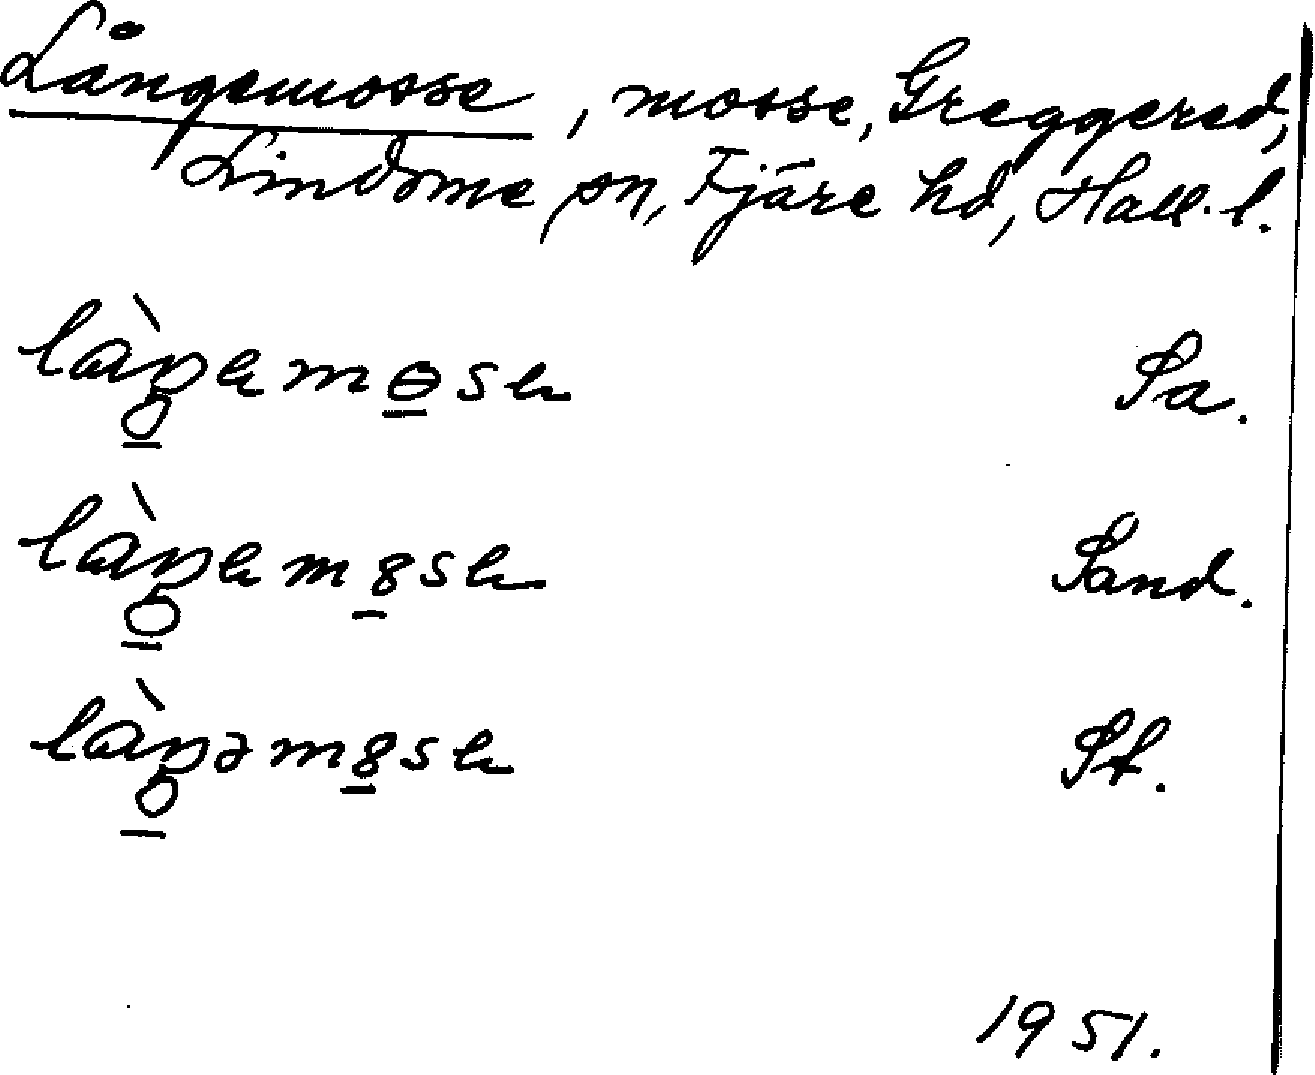 Långemosse, mosse, Greggered,
Lindome sn, Fjäre hd, Hall. l.
Sa.
Sand.
St.
1951.